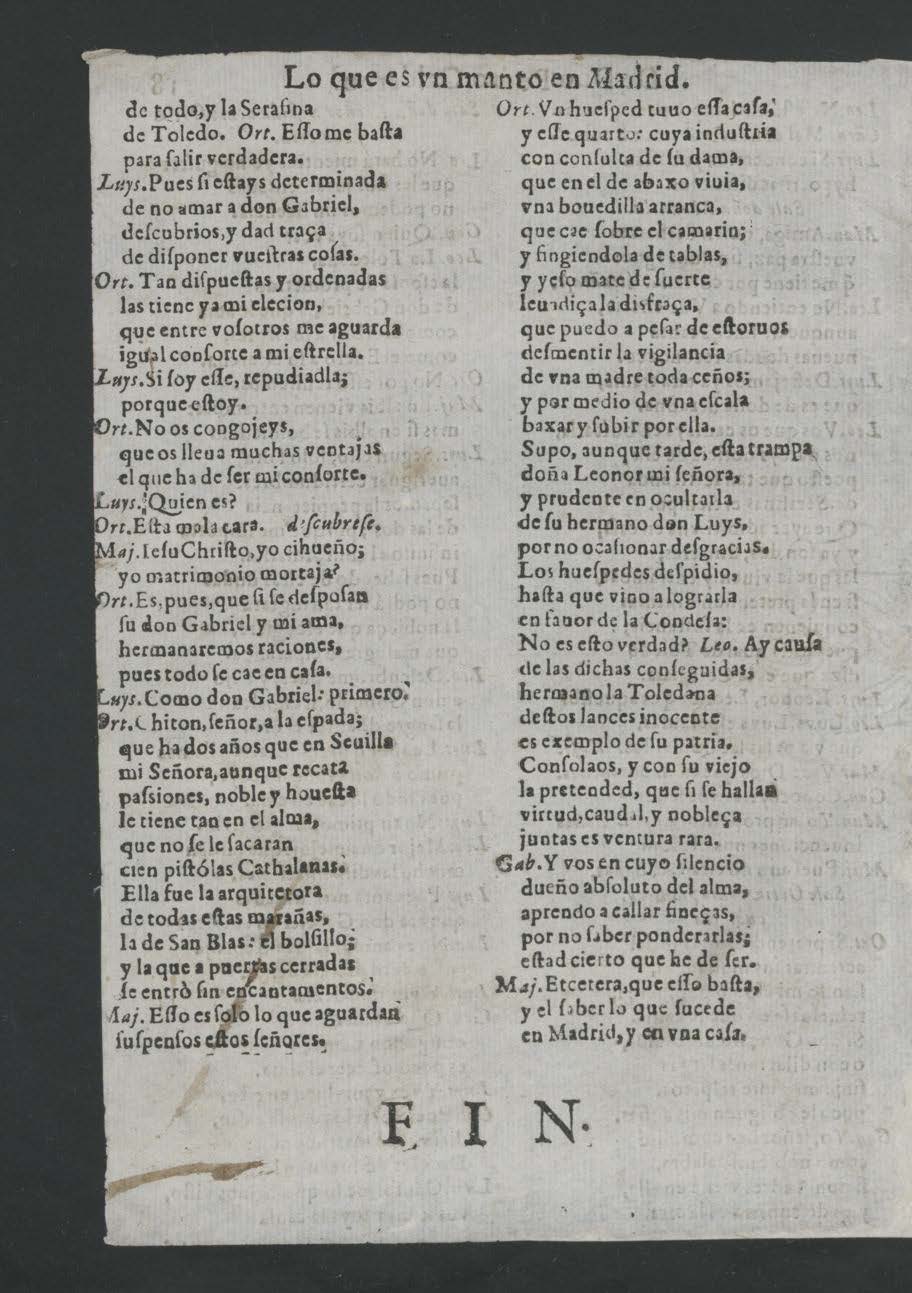 Lo que es vn manto en Madrid.
de todo, y la Serafina
de Toledo. Ort. Eſſo me baſta
para ſalir verdadera.
Luys. Pues ſi eſtays determinada
de no amar a don Gabriel,
deſcubrios, y dad traça
de diſponer vueſtras coſas.
Ort. Tan diſpueſtas y ordenadas
las tiene ya mi elecion,
que entre voſotros me aguarda
igual conſorte a mi eſtrella.
Luys. Si ſoy eſſe, repudiadla;
porque eſtoy.
Ort. No os congojeys,
que os lleua muchas ventajas
el que ha de ſer mi conſorte.
Luys. Quien es?
Ort. Eſta mala cara. d'ſcubreſe.
Maj. Ieſu Chriſto, yo cihueño;
yo matrimonio mortaja?
Ort. Es, pues, que ſi ſe deſpoſan
ſu don Gabriel y mi ama,
hermanaremos raciones,
pues todo ſe cae en caſa.
Luys. Como don Gabriel: primero.
Ort. Chiton, ſeñor, a la eſpada;
que ha dos años que en Seuilla
mi Señora, aunque recata
paſsiones, noble y honeſta
le tiene tan en el alma,
que no ſe le ſacaran
cien piſtólas Cathalanas.
Ella fue la arquitetora
de todas eſtas marañas,
la de San Blas: el bolſillo;
y la que a puertas cerradas
ſe entrò ſin encantamentos.
Maj. Eſſo es ſolo lo que aguardan
ſuſpenſos eſtos ſeñores.
Ort. Vn hueſped tuuo eſſa caſa,
y eſſe quarto: cuya induſtria
con conſulta de ſu dama,
que en el de abaxo viuia,
vna bouedilla arranca,
que cae ſobre el camarin;
y fingiendola de tablas,
y yeſo mate de ſuerte
leuadiça la disfraça,
que puedo a peſar de eſtoruos
deſmentir la vigilancia
de vna madre toda ceños;
y por medio de vna eſcala
baxar y ſubir por ella.
Supo, aunque tarde, eſta trampa
doña Leonor mi ſeñora,
y prudente en ocultarla
de ſu hermano don Luys,
por no ocaſionar deſgracias.
Los hueſpedes deſpidio,
haſta que vino a lograrla
en fauor de la Condeſa:
No es eſto verdad? Leo. Ay cauſa
de las dichas conſeguidas,
hermano la Toledana
deſtos lances inocente
es exemplo de ſu patria.
Conſolaos, y con ſu viejo
la pretended, que ſi ſe hallan
virtud, caudal, y nobleça
juntas es ventura rara.
Gab. Y vos en cuyo ſilencio
dueño abſoluto del alma,
aprendo a callar fineças,
por no ſaber ponderarlas;
eſtad cierto que he de ſer.
Maj. Etcetera, que eſſo baſta,
y el ſaber lo que ſucede
en Madrid, y en vna caſa.
F I N.